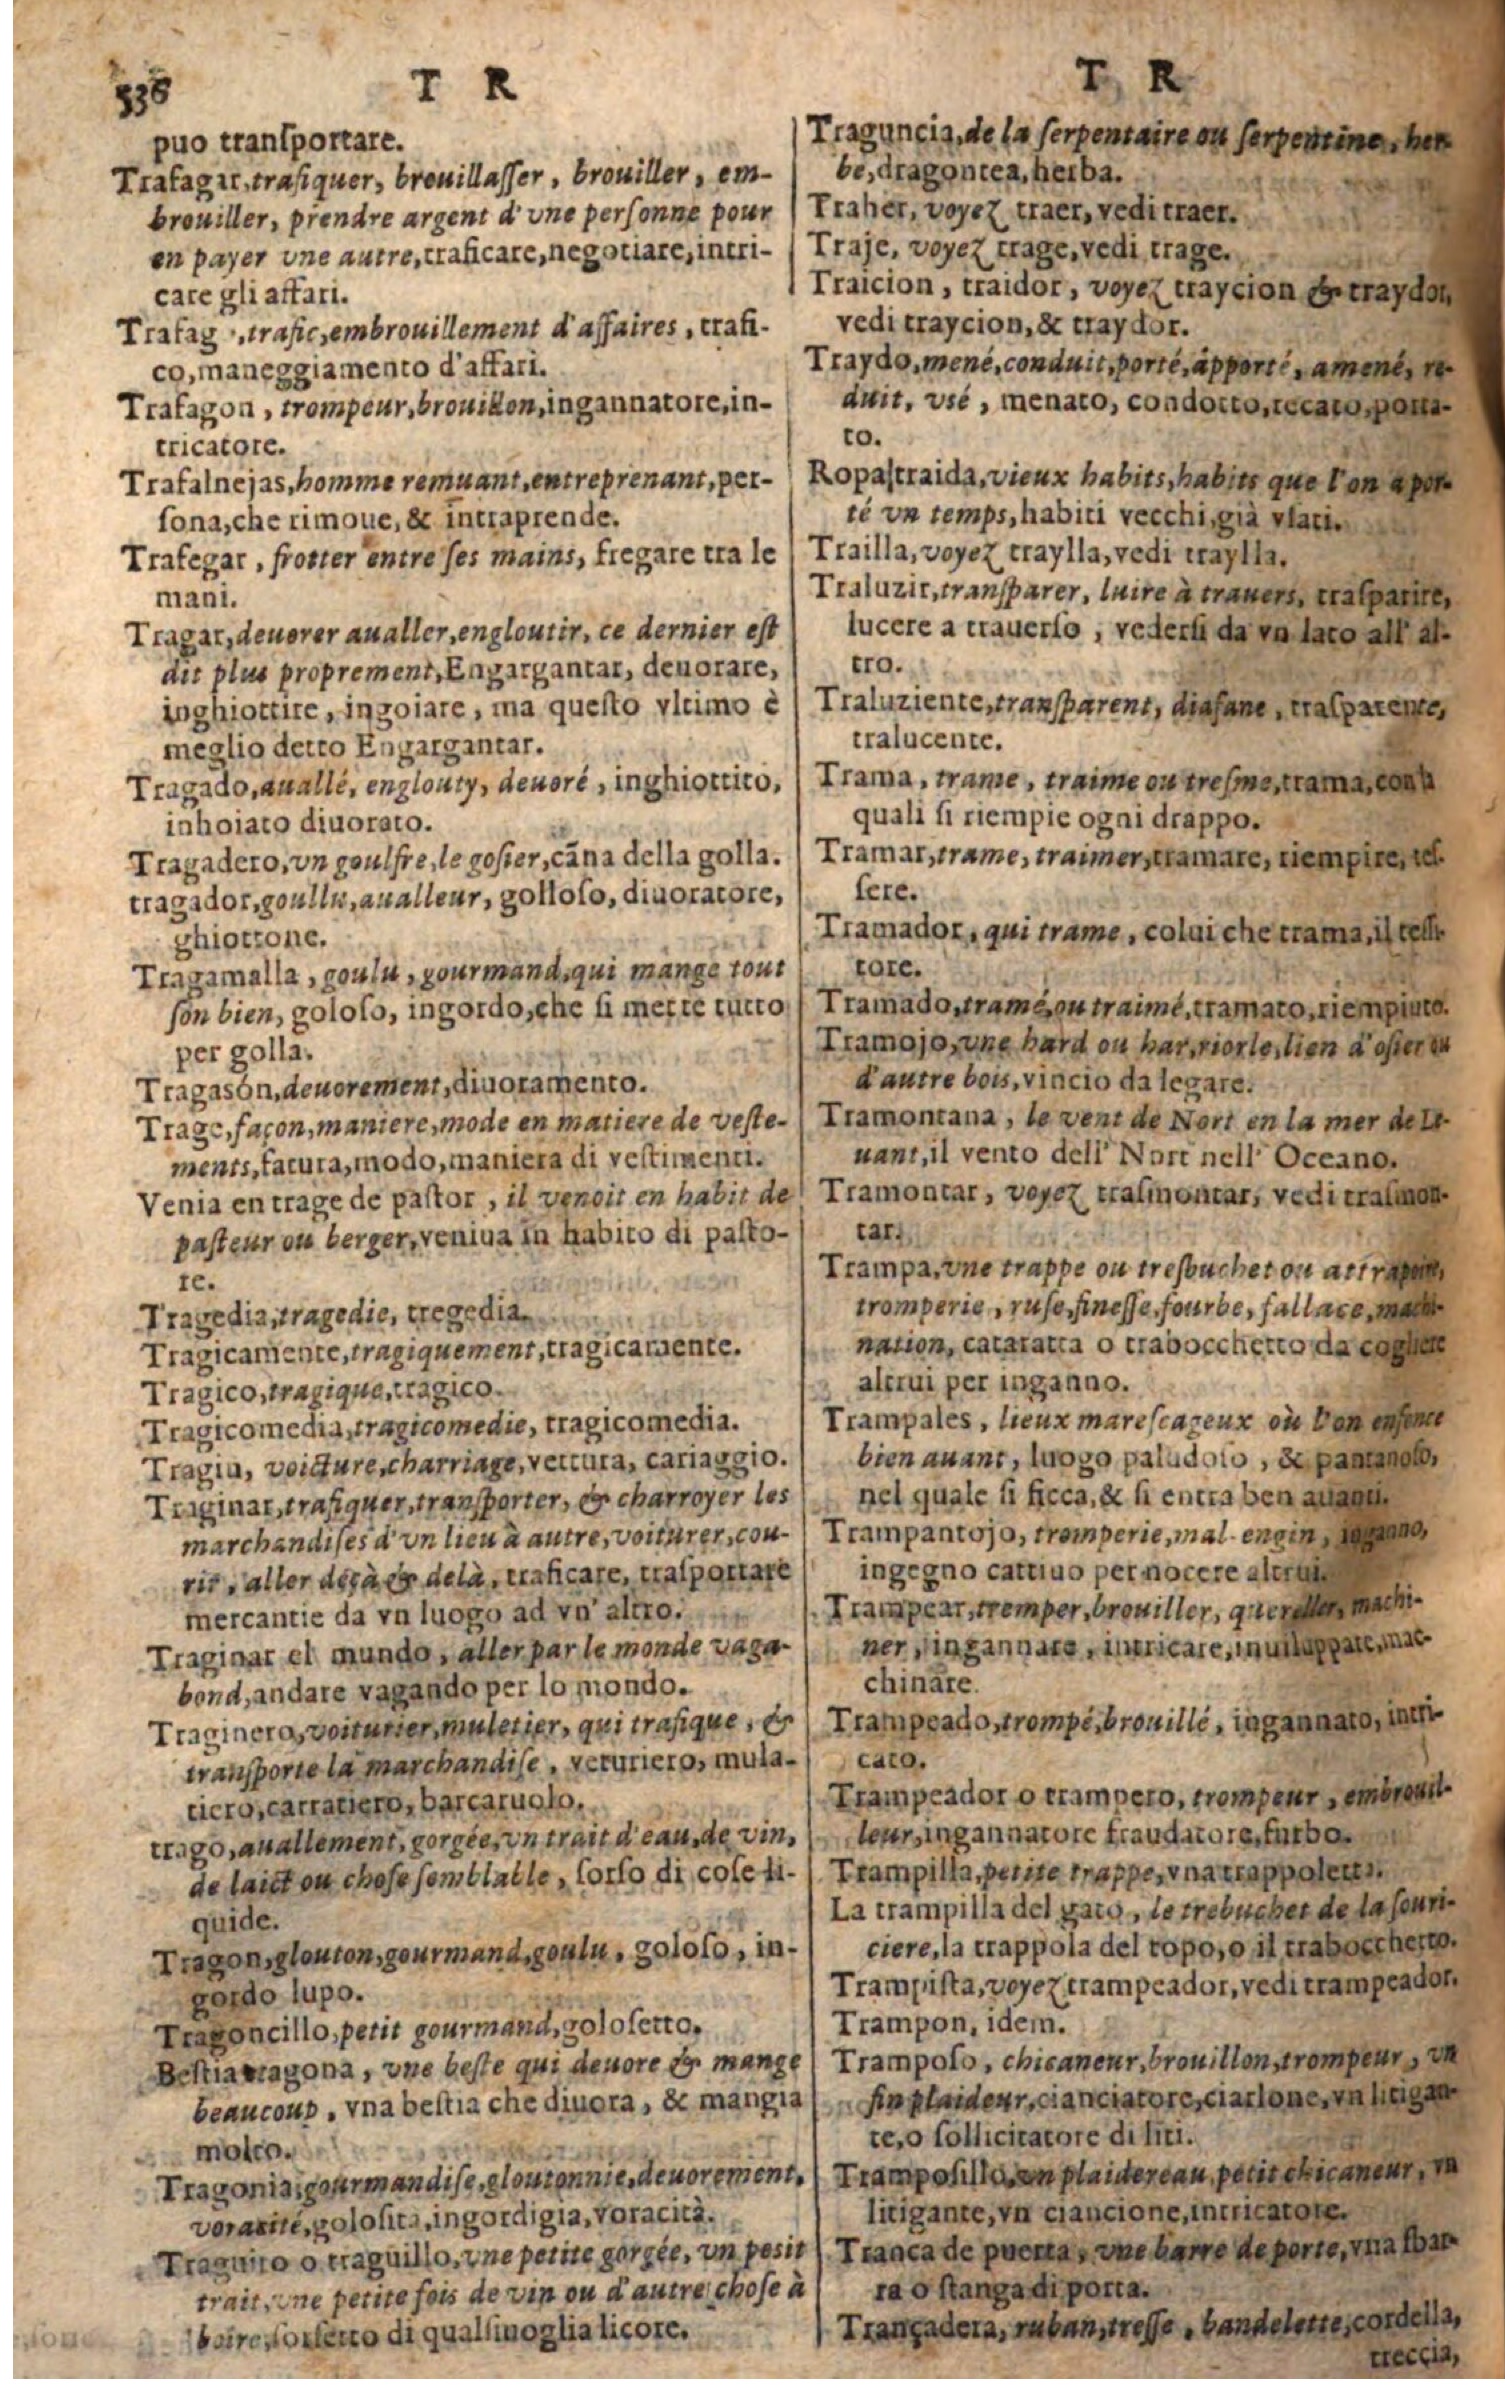 536
T R
puo transportare.
Trafagar, trafiquer, brouillasser, brouiller, em-
brouiller, prendre argent d'vne personne pour
en payer vne autre, traficare, negotiare, intri-
care gli affari.
Trafag , trafic, embrouillement d'affaires, trafi-
co, maneggiamento d'affari.
Trafagon, trompeur, brouillon, ingannatore, in-
tricatore.
Trafalnejas, homme remuant, entreprenant, per-
sona, che rimoue, & intraprende.
Trafegar, frotter entre ses mains, fregare tra le
mani.
Tragar, deuorer aualler, engloutir, ce dernier est
dit plus proprement, Engargantar, deuorare,
inghiottire, ingoiare, ma questo vltimo è
meglio detto Engargantar.
Tragado, auallé, englouty, deuoré, inghiottito,
inhoiato diuorato.
Tragadero, vn goulfre, le gosier, cãna della golla.
tragador, goullu, aualleur, golloso, diuoratore,
ghiottone.
Tragamalla, goulu, gourmand, qui mange tout
son bien, goloso, ingordo, che si mette tutto
per golla.
Tragasón, deuorement, diuoramento.
Trage, façon, maniere, mode en matiere de veste-
ments, fatura, modo, maniera di vestimenti.
Venia en trage de pastor, il venoit en habit de
pasteur ou berger, veniua in habito di pasto-
re.
Tragedia, tragedie, tregedia.
Tragicamente, tragiquement, tragicamente.
Tragico, tragique, tragico.
Tragicomedia, tragicomedie, tragicomedia.
Tragin, voicture, charriage, vettura, cariaggio.
Traginar, trafiquer, transporter, & charroyer les
marchandises d'vn lieu à autre, voiturer, cou-
rir, aller deçà & delà, traficare, trasportare
mercantie da vn luogo ad vn' altro.
Traginar el mundo, aller par le monde vaga-
bond, andare vagando per lo mondo.
Traginero, voiturier, muletier, qui trafique, &
transporte la marchandise, veturiero, mula-
tiero, carratiero, barcaruolo.
trago, auallement, gorgée, vn trait d'eau, de vin,
de laict ou chose semblable, sorso di cose li-
quide.
Tragon, glouton, gourmand, goulu, goloso, in-
gordo lupo.
Tragoncillo, petit gourmand, golosetto.
Bestia tragona, vne beste qui deuore & mange
beaucoup, vna bestia che diuora, & mangia
molto.
Tragonia, gourmandise, gloutonnie, deuorement,
voracité, golosita, ingordigia, voracità.
Traguito o traguillo, vne petite gorgée, vn pesit
trait, vne petite fois de vin ou d'autre chose à
boire, sorsetto di qualsiuoglia licore.
T R
Traguncia, de la serpentaire ou serpentine, her-
be, dragontea, herba.
Traher, voyez traer, vedi traer.
Traje, voyez trage, vedi trage.
Traicion, traidor, voyez traycion & traydor,
vedi traycion, & traydor.
Traydo, mené, conduit, porté, apporté, amené, re-
duit, vsé, menato, condotto, recato, porta-
to.
Ropa traida, vieux habits, habits que l'on a por-
té vn temps, habiti vecchi, già vsati.
Trailla, voyez traylla, vedi traylla.
Traluzir, transparer, luire à trauers, trasparire,
lucere a trauerso, vedersi da vn lato all' al-
tro.
Traluziente, transparent, diafane, trasparente,
tralucente.
Trama, trame, traime ou tresme, trama, con la
quali si riempie ogni drappo.
Tramar, trame, traimer, tramare, riempire, tes-
sere.
Tramador, qui trame, colui che trama, il tessi-
tore.
Tramado, tramé, ou traimé, tramato, riempiuto.
Tramojo, vne hard ou har, riorle, lien d'osier ou
d'autre bois, vincio da legare.
Tramontana, le vent de Nort en la mer de Le-
uant, il vento dell' Nort nell' Oceano.
Tramontar, voyez trasmontar, vedi trasmon-
tar.
Trampa, vne trappe ou tresbuchet ou attrapoire,
tromperie, ruse, finesse, fourbe, fallace, machi-
nation, cataratta o trabocchetto da cogliere
altrui per inganno.
Trampales, lieux marescageux où l'on enfonce
bien auant, luogo paludoso, & pantanoso,
nel quale si ficca, & si entra ben auanti.
Trampantojo, tromperie, mal-engin, inganno,
ingegno cattiuo per nocere altrui.
Trampear, tremper, brouiller, quereller, machi-
ner, ingannare, intricare, inuiluppare, mac-
chinare.
Trampeado, trompé, brouillé, ingannato, intri-
cato.
Trampeador o trampero, trompeur, embrouil-
leur, ingannatore fraudatore, furbo.
Trampilla, petite trappe, vna trappoletta.
La trampilla del gato, le trebuchet de la souri-
ciere, la trappola del topo, o il trabocchetto.
Trampista, voyez trampeador, vedi trampeador.
Trampon, idem.
Tramposo, chicaneur, brouillon, trompeur, vn
fin plaideur, cianciatore, ciarlone, vn litigan-
te, o sollicitatore di liti.
Tramposillo, vn plaidereau, petit chicaneur, vn
litigante, vn ciancione, intricatore.
Tranca de puerta, vne barre de porte, vna sbar-
ra o stanga di porta.
Trançadera, ruban, tresse, bandelette, cordella,
treccia,